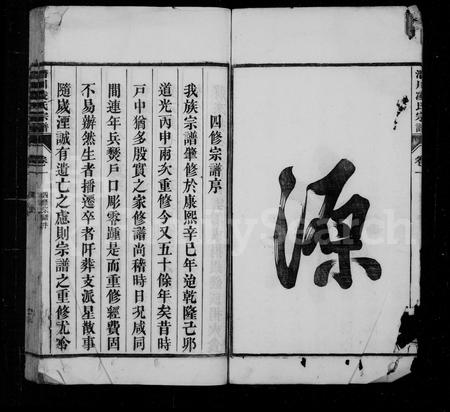 源
四修宗譜序
我族宗譜肇修於康熙辛巳年迨乾隆己卯
道光丙申兩次重修今又五十餘年矣昔時
戸中猶多殷實之家修譜尚稽時日况咸同
間連年兵燹戸口彫零踵是而重修經費固
不易辦然生者播遷卒者阡葬支派星散事
隨歲湮誠有遺亡之慮則宗譜之重修尤
卷一